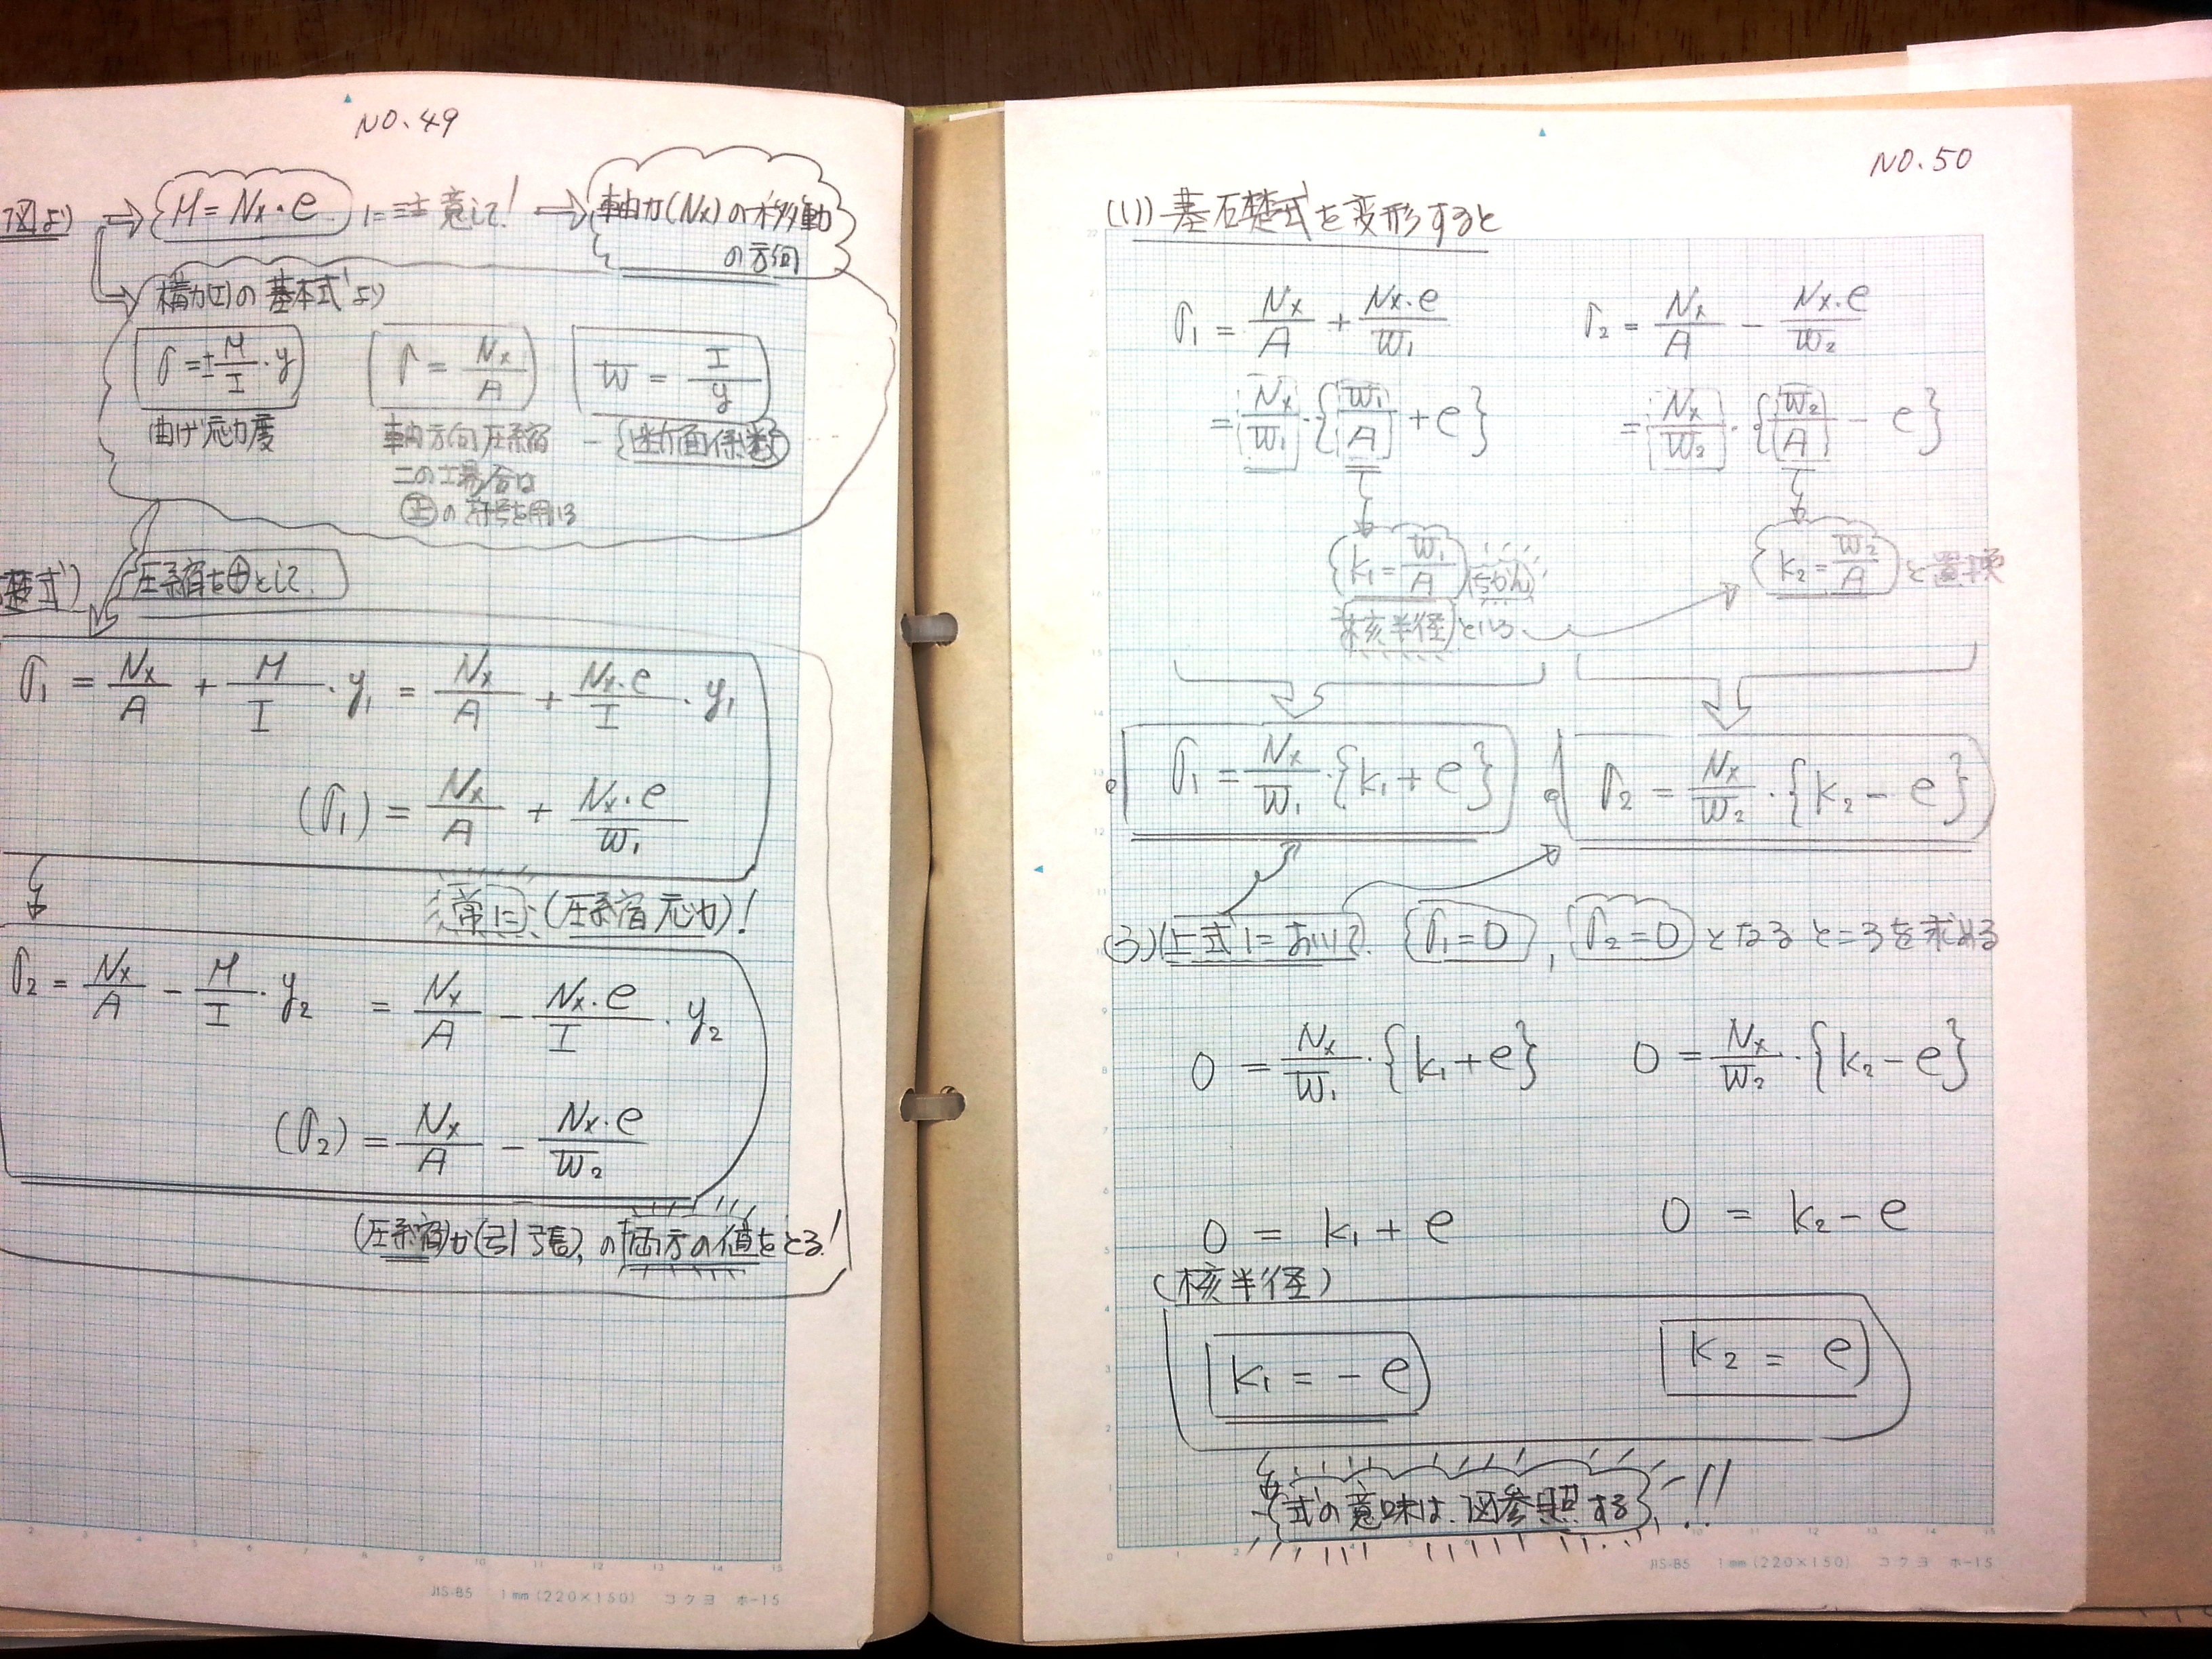 NO.49
図より ⇒ M = Nx・e に注意して! ⇒ 軸力(Nx)の移動
の方向
構力(I)の基本式より
σ = ± M/I・y
σ = Nx/A
W = I/y
曲げ応力度
軸方向圧縮
断面係数
この場合は
㊣の符号を用いる
礎式)
圧縮を⊕として
σ1 = Nx/A + M/I・y1 = Nx/A + Nx・e/I・y1
(σ1) = Nx/A + Nx・e/W1
常に (圧縮応力)!
σ2 = Nx/A − M/I・y2 = Nx/A − Nx・e/I・y2
(σ2) = Nx/A − Nx・e/W2
(圧縮)か(引張)、の両方の値をとる!
JIS-B5 1mm(220×150) コクヨ ホ-15
NO.50
(11) 基礎式を変形すると
σ1 = Nx/A + Nx・e/W1
σ2 = Nx/A − Nx・e/W2
= Nx/W1・{W1/A + e}
= Nx/W2・{W2/A − e}
k1 = W1/A
k2 = W2/A と置換
核半径という
σ1 = Nx/W1・{k1 + e}
σ2 = Nx/W2・{k2 − e}
(3) 上式において σ1 = 0, σ2 = 0 となるところを求める
0 = Nx/W1・{k1 + e}
0 = Nx/W2・{k2 − e}
0 = k1 + e
0 = k2 − e
(核半径)
k1 = − e
k2 = e
式の意味は、図参照する!!
JIS-B5 1mm(220×150) コクヨ ホ-15